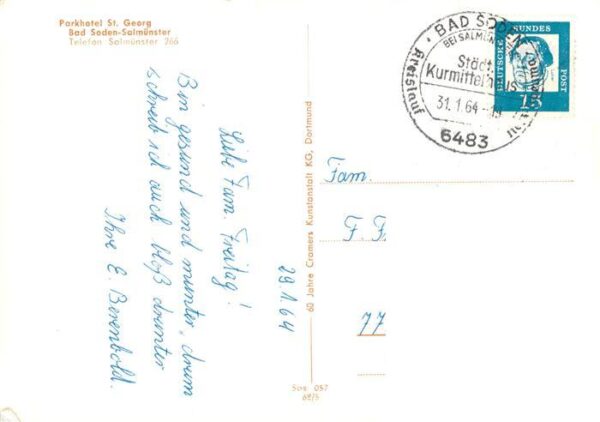 Parkhotel St. Georg
Bad Soden-Salmünster
Telefon Salmünster 266
29.1.64
Liebe Fam. Freitag!
Bin gesund und munter, drum
schreib ich auch bloß drunter
Ihre E. Berenbold.
60 Jahre Cramers Kunstanstalt KG, Dortmund
57
62/5
BAD SODEN
BEI SALMÜN
Städt
Kurmittelhaus
31.1.64
6483
Kreislauf
DEUTSCHE BUNDES POST
15
Fam.
F. F.
77